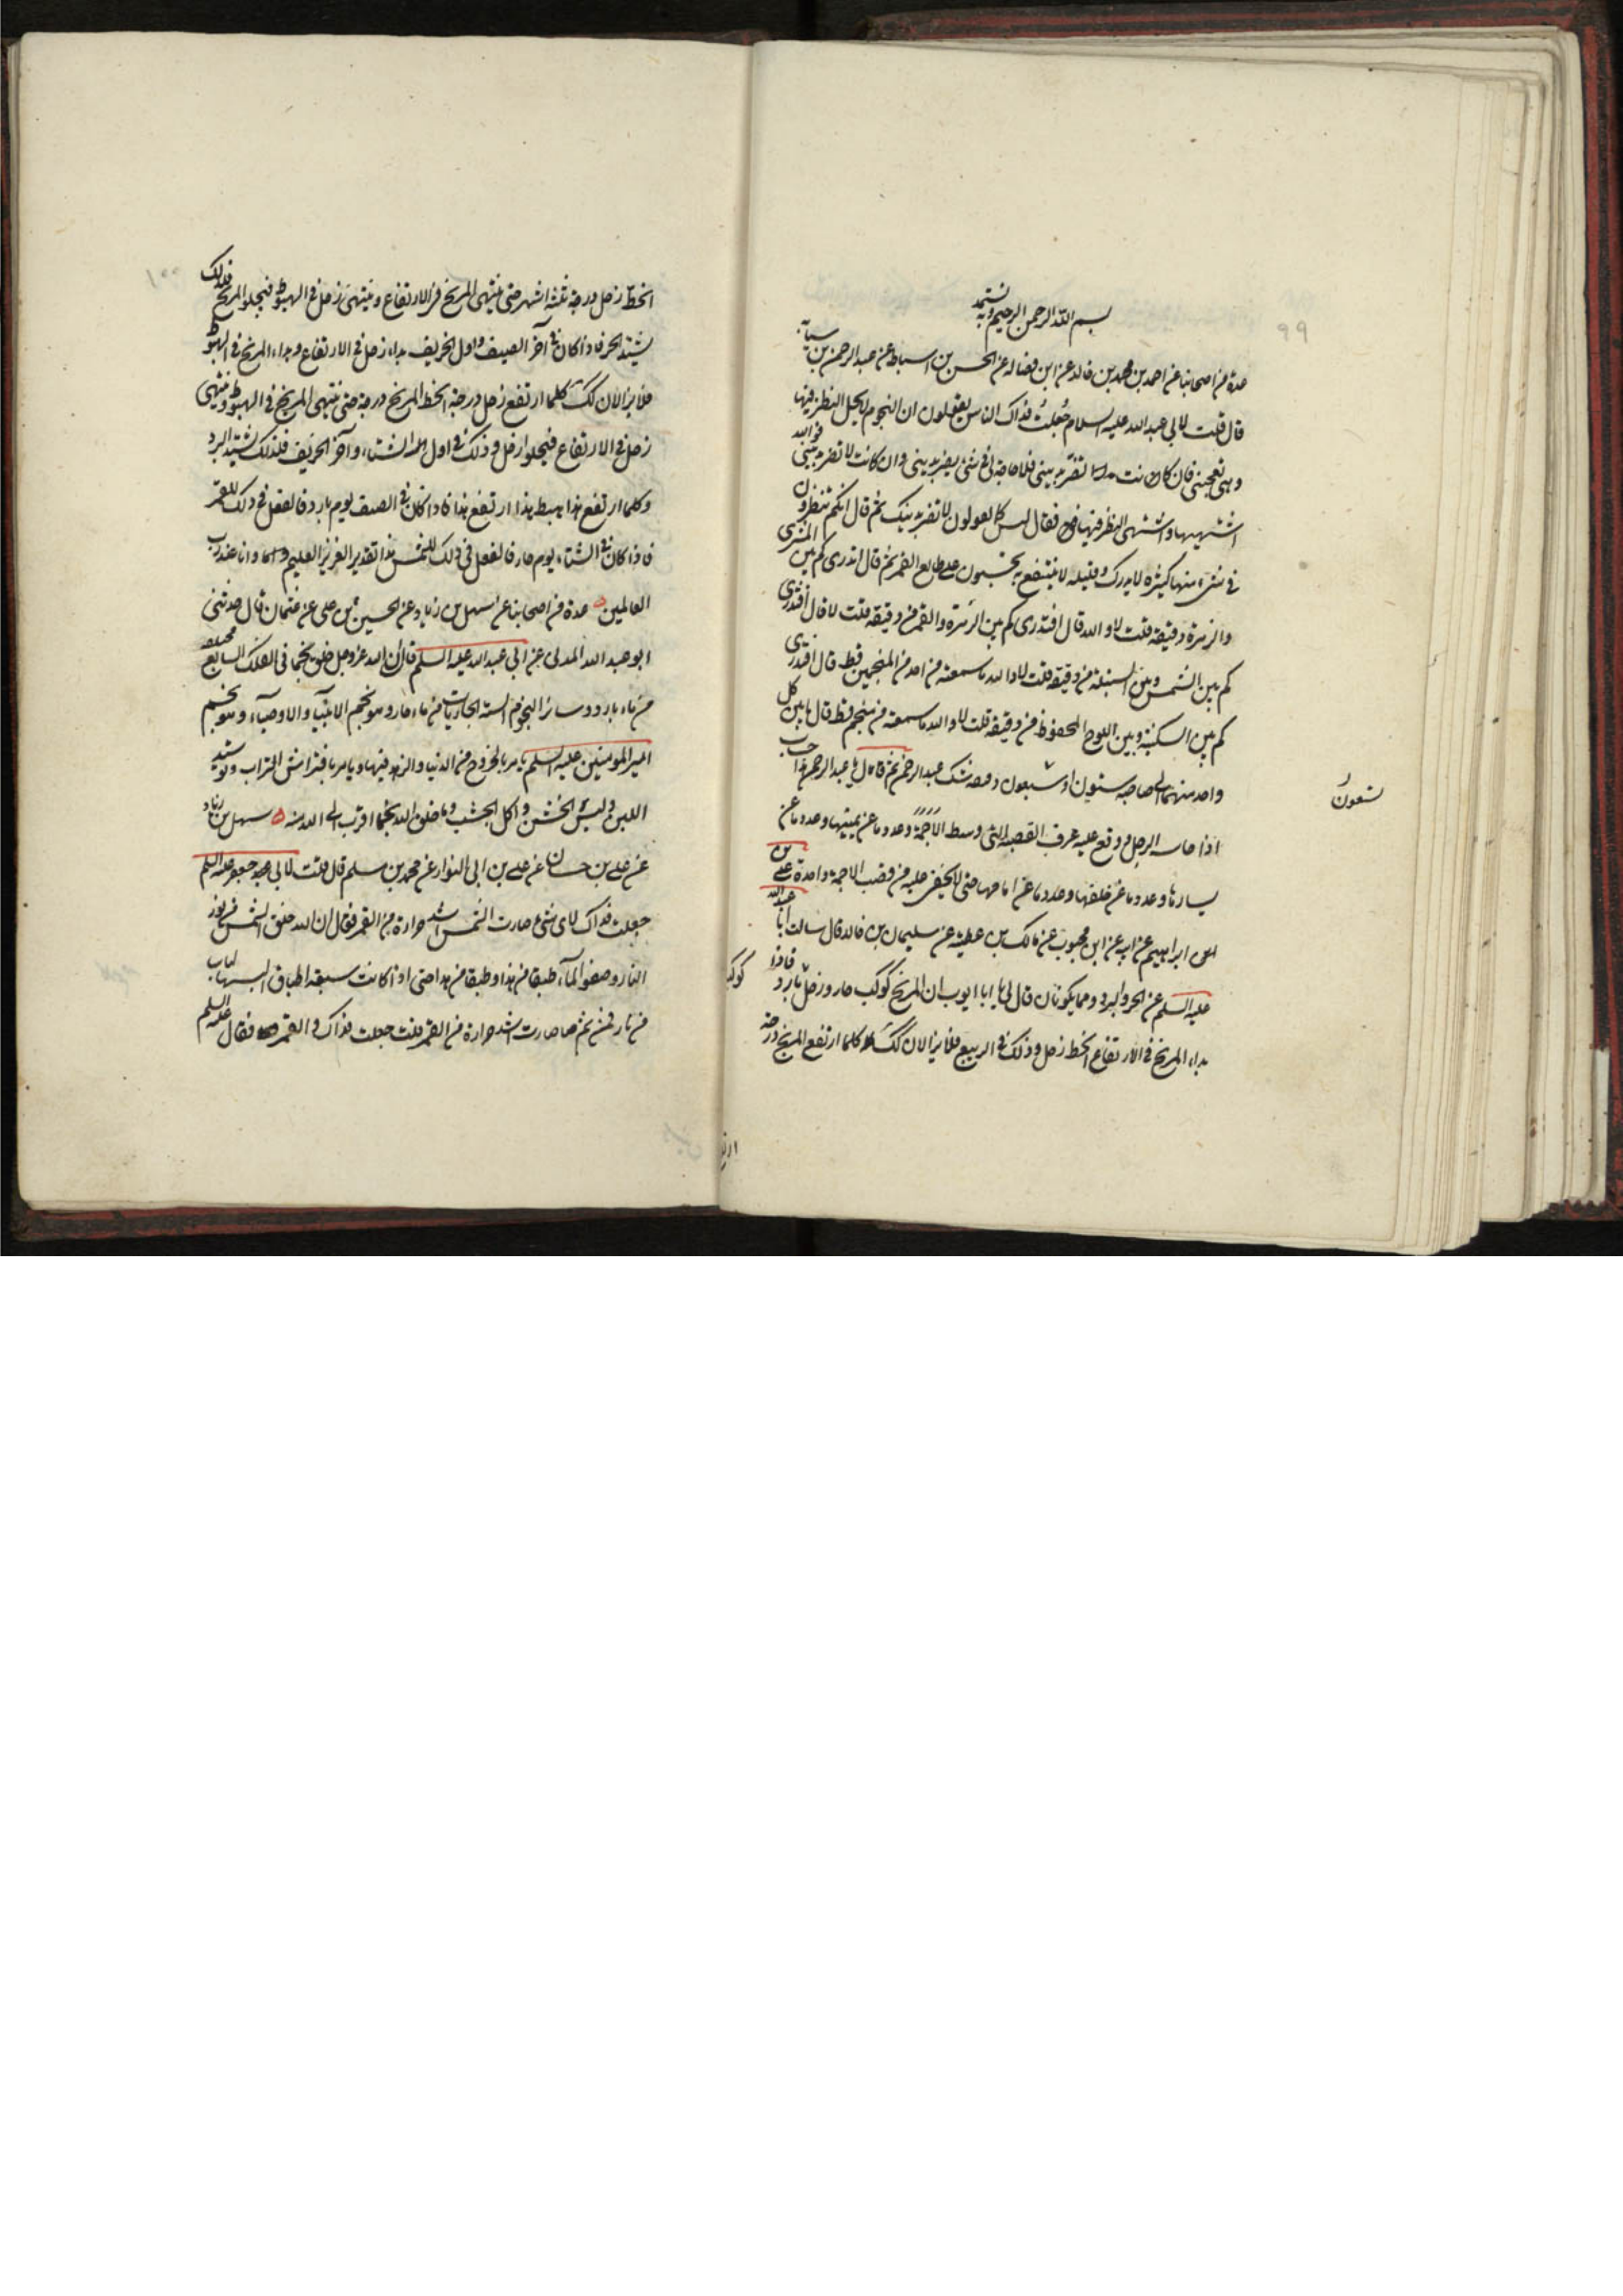 ٩٩
بسم الله الرحمن الرحيم وبه نستمد
عدة من اصحابنا عن احمد بن محمد بن خالد عن ابن فضال عن الحسن بن اسباط عن عبد الرحمن بن سيابه
قال قلت لابي عبد الله عليه السلام جُعلتُ فداك الناس يقولون ان النجوم لا يحل النظر فيها
وهى تعجبنى فان كانت تضر بدينى فلا حاجة لى فى شئ يضر بدينى وان كانت لا تضر بدينى فوالله
اشتهيها واشتهى النظر فيها فقال ليس كما يقولون لا تضر بدينك ثم قال انكم تنظرون
فى شىء منها كثيره لا يدرك وقليله لا ينتفع به تحسبون على طالع القمر ثم قال اتدرى كم بين المشترى
والزهرة دقيقة قلت لا والله قال افتدرى كم بين الزهرة والقمر من دقيقة قلت لا قال افتدرى
كم بين الشمس وبين السنبلة من دقيقة قلت لا والله ما سمعته من احد من المنجمين قط قال افتدرى
كم بين السكينة وبين اللوح المحفوظ من دقيقة قلت لا والله ما سمعته من منجم قط قال ما بين كل
واحد منهما الى صاحبه ستون او سبعون دقيقة شك عبد الرحمن ثم قال يا عبد الرحمن هذا حساب
تسعون
اذا حسبه الرجل ووقع عليه عرف القصبة التى وسط الاَجمة وعدد ما عن يمينها وعدد ما عن
يسارها وعدد ما عن خلفها وعدد ما عن امامها حتى لا يخفى عليه من قصب الاجمة واحدة على بن
ابراهيم عن ابيه عن ابن محبوب عن مالك بن عطية عن سليمان بن خالد قال سالت ابا عبد الله
عليه السلم عن الحر والبرد ومما يكونان قال لى يا ابا ايوب ان المريخ كوكب حار وزحل بارد فاذا
كوكب
بداء المريخ فى الارتفاع انحط زحل وذلك فى الربيع فلا يزالان كذلك كلما ارتفع المريخ درجة
١٠٠
انحطّ زحل درجة ثلثة اشهر حتى ينتهى المريخ فى الارتفاع وينتهى زحل فى الهبوط فيجلو المريخ فلذلك
يشتد الحر فاذا كان فى آخر الصيف واول الخريف بداء زحل فى الارتفاع وبداء المريخ فى الهبوط
فلا يزالان كذلك كلما ارتفع زحل درجة انحط المريخ درجة حتى ينتهى المريخ فى الهبوط وينتهى
زحل فى الارتفاع فيجلو زحل وذلك فى اول الشتاء وآخر الخريف فلذلك يشتد البرد
وكلما ارتفع هذا هبط هذا وكلما هبط هذا ارتفع هذا فاذا كان فى الصيف يوم بارد فالفعل فى ذلك للقمر
فاذا كان فى الشتاء يوم حار فالفعل فى ذلك للشمس هذا تقدير العزيز العليم وانا عبد رب
العالمين عدة من اصحابنا عن سهل بن زياد عن الحسين بن على عن عثمان قال حدثنى
ابو عبد الله المدنى عن ابى عبد الله عليه السلم قال ان الله عز وجل خلق نجما فى الفلك السابع فخلقه
من ماء بارد وسائر النجوم الستة الجاريات من ماء حار وهو نجم الانبيآء والاوصيآء وهو نجم
امير المومنين عليه السلم يامر بالخروج من الدنيا والزهد فيها ويامر بافتراش التراب وتوسد
اللبن ولبس الخشن واكل الجشب وما خلق الله نجما اقرب الى الله منه سهل بن زياد
عن على بن حسان عن على بن ابى النوار عن محمد بن مسلم قال قلت لابى جعفر عليه السلم
جعلت فداك لاى شئ صارت الشمس اشد حرارة من القمر فقال ان الله خلق الشمس من نور
النار وصفو المآء طبقا من هذا وطبقا من هذا حتى اذا كانت سبعة اطباق البسها لباسا
من نار فمن ثم صارت اشد حرارة من القمر قلت جعلت فداك والقمر فقال عليه السلم